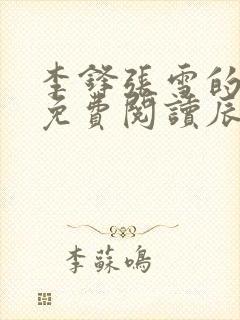 李鋒張雪的
免費閱讀辰
李蘇鳴